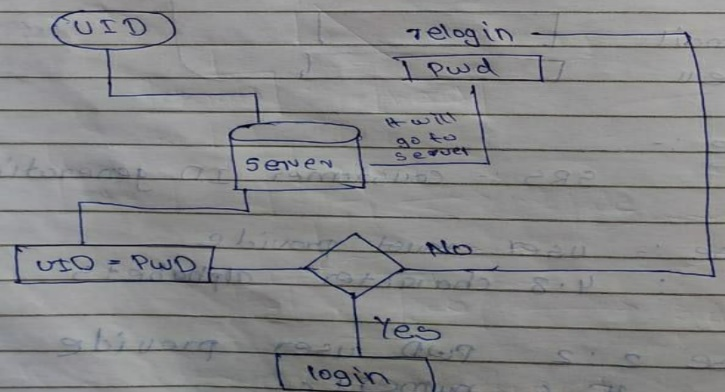 UID
relogin
Pwd
it will
go to
server
server
UID = PWD
NO
Yes
login